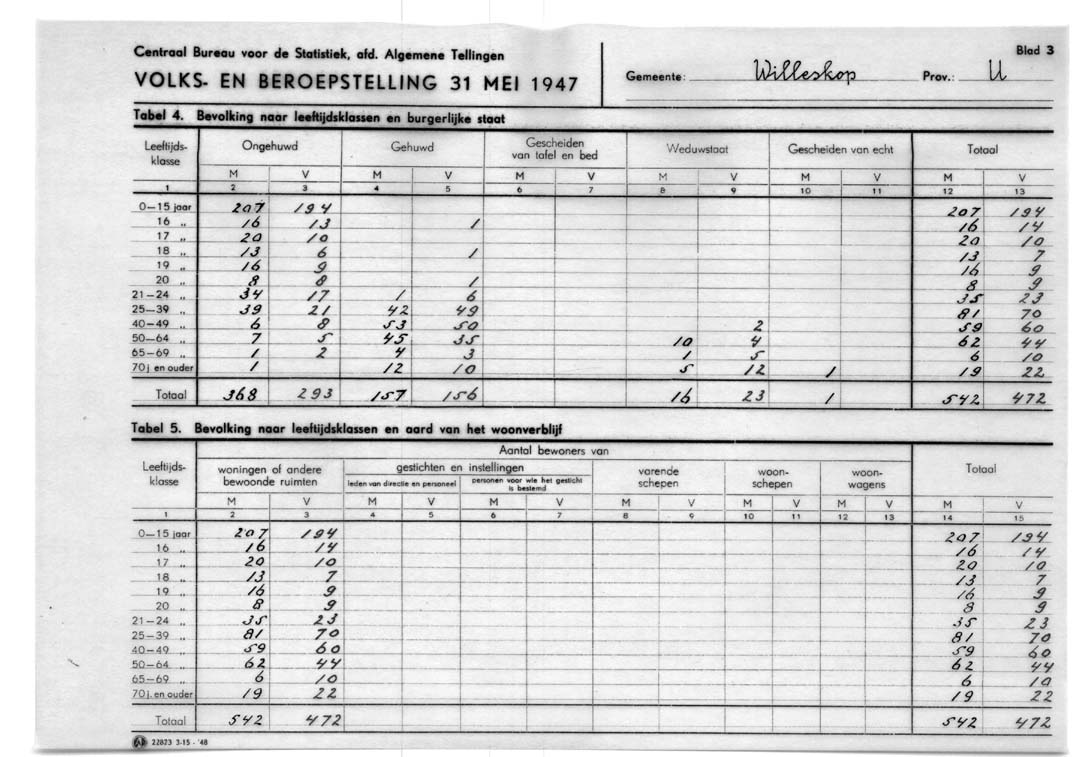 Centraal Bureau voor de Statistiek, afd. Algemene Tellingen
VOLKS- EN BEROEPSTELLING 31 MEI 1947
Gemeente: Willeskop Prov.: U
Blad 3
Tabel 4. Bevolking naar leeftijdsklassen en burgerlijke staat
Leeftijds-klasse Ongehuwd Gehuwd Gescheiden van tafel en bed Weduwstaat Gescheiden van echt Totaal
M V M V M V M V M V M V
1 2 3 4 5 6 7 8 9 10 11 12 13
0—15 jaar 207 194 207 194
16 „ 16 13 1 16 14
17 „ 20 10 20 10
18 „ 13 6 1 13 7
19 „ 16 9 16 9
20 „ 8 8 1 8 9
21—24 „ 34 17 1 6 35 23
25—39 „ 39 21 42 49 81 70
40—49 „ 6 8 53 50 2 59 60
50—64 „ 7 5 45 35 10 4 62 44
65—69 „ 1 2 4 3 1 5 6 10
70 j en ouder 1 12 10 5 12 1 19 22
Totaal 368 293 157 156 16 23 1 542 472
Tabel 5. Bevolking naar leeftijdsklassen en aard van het woonverblijf
Aantal bewoners van
Leeftijds-klasse woningen of andere bewoonde ruimten gestichten en instellingen varende schepen woon-schepen woon-wagens Totaal
leden van directie en personeel personen voor wie het gesticht is bestemd
M V M V M V M V M V M V M V
1 2 3 4 5 6 7 8 9 10 11 12 13 14 15
0—15 jaar 207 194 207 194
16 „ 16 14 16 14
17 „ 20 10 20 10
18 „ 13 7 13 7
19 „ 16 9 16 9
20 „ 8 9 8 9
21—24 „ 35 23 35 23
25—39 „ 81 70 81 70
40—49 „ 59 60 59 60
50—64 „ 62 44 62 44
65—69 „ 6 10 6 10
70 j. en ouder 19 22 19 22
Totaal 542 472 542 472
22873 3-15-'48